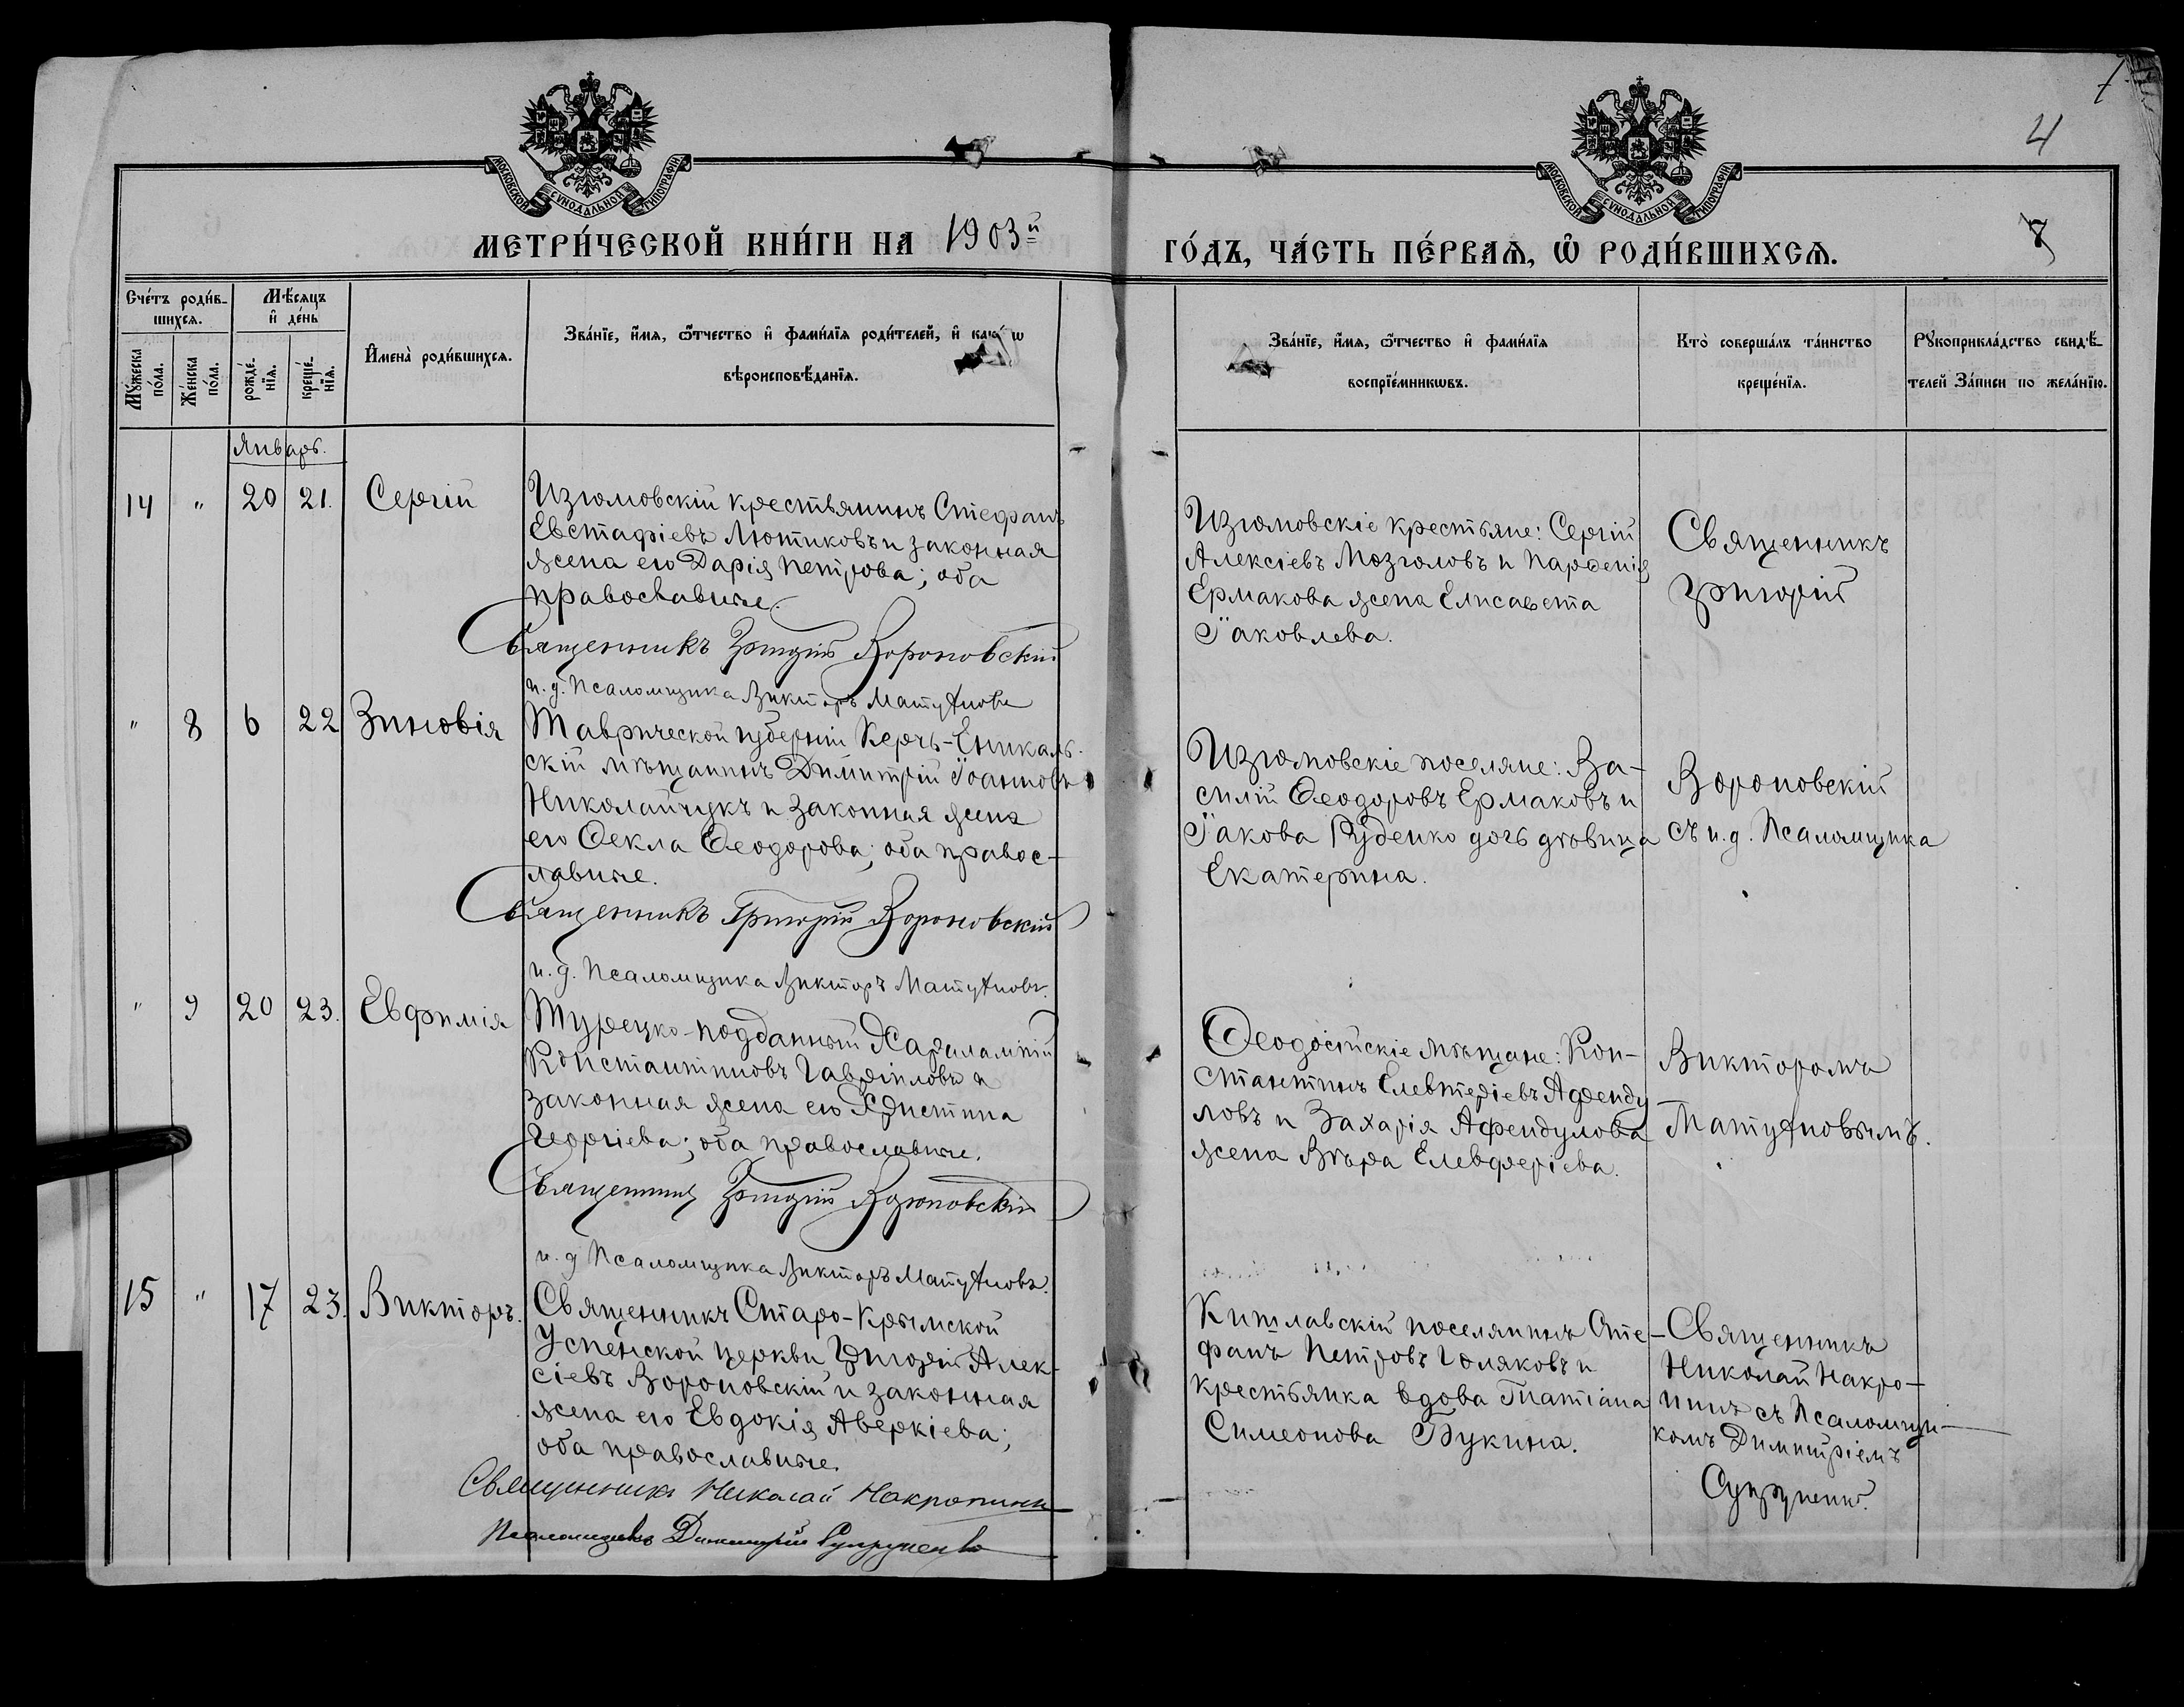 МОСКОВСКОЙ СѴНОДАЛЬНОЙ ТИПОГРАФІИ
МОСКОВСКОЙ СѴНОДАЛЬНОЙ ТИПОГРАФІИ
4
МЕТРИ́ЧЕСКОЙ КНИ́ГИ НА 1903й
ГО́ДЪ, ЧА́СТЬ ПЕ́РВАѦ, Ѡ҆ РОДИ́ВШИХСѦ.
Сче́тъ роди́в-
шихсѧ.
Мѣ́сяцъ
и҆ де́нь
Мꙋ́жеска
по́ла.
Же́нска
по́ла.
рожде́-
нїѧ.
креще́-
нїѧ.
И҆мена̀ роди́вшихсѧ.
Зва́нїе, и҆́мѧ, ѻ҆́тчество и҆ фами́лїѧ роди́телей, и҆ како́гѡ
вѣроисповѣ́данїѧ.
Зва́нїе, и҆́мѧ, ѻ҆́тчество и҆ фами́лїѧ
воспрїе́мникѡвъ.
Кто̀ соверша́лъ та́инство
креще́нїѧ.
Рꙋкоприкла́дство свидѣ́-
телей За́писи по жела́нїю.
Январь.
14 " 20 21. Сергій
Изюмовскій крестьянинъ Стефанъ
Евстафіевъ Лютиковъ и законная
жена его Дарія Петрова; оба
православные.
Священникъ Григорій Вороновскій
и. д. Псаломщика Викторъ Матуяновъ
Изюмовскіе крестьяне: Сергій
Алексіевъ Мозголовъ и Парѳенія
Ермакова жена Елисавета
Іаковлева.
Священникъ
Григорій
" 8 6 22 Зиновія
Таврической губерніи Керчь-Еникаль-
скій мѣщанинъ Димитрій Іоанновъ
Николайчукъ и законная жена
его Ѳекла Ѳеодорова; оба правос-
лавные.
Священникъ Григорій Вороновскій
и. д. Псаломщика Викторъ Матуяновъ.
Изюмовскіе поселяне: Ва-
силій Ѳеодоровъ Ермаковъ и
Іакова Руденко дочь дѣвица
Екатерина.
Вороновскій
съ и. д. Псаломщика
" 9 20 23. Евфимія
Турецко-подданный Харалампій
Константиновъ Гавріиловъ и
законная жена его Христина
Георгіева; оба православные.
Священникъ Григорій Вороновскій
и. д Псаломщика Викторъ Матуяновъ.
Ѳеодосійскіе мѣщане: Кон-
стантинъ Елевтеріевъ Афенду
ловъ и Захарія Афендулова
жена Вѣра Елевферіева.
Викторомъ
Матуяновымъ.
15 " 17 23. Викторъ.
Священникъ Старо-Крымской
Успенской церкви Григорій Алек-
сіевъ Вороновскій и законная
жена его Евдокія Аверкіева;
оба православные.
Священникъ Николай Накропинъ
Псаломщикъ Димитрій Супруненко
Кишлавскій поселянинъ Сте-
фанъ Петровъ Голяковъ и
крестьянка вдова Татіана
Симеонова Букина.
Священникъ
Николай Накро-
пинъ съ Псаломщи-
комъ Димитріемъ
Супруненко.